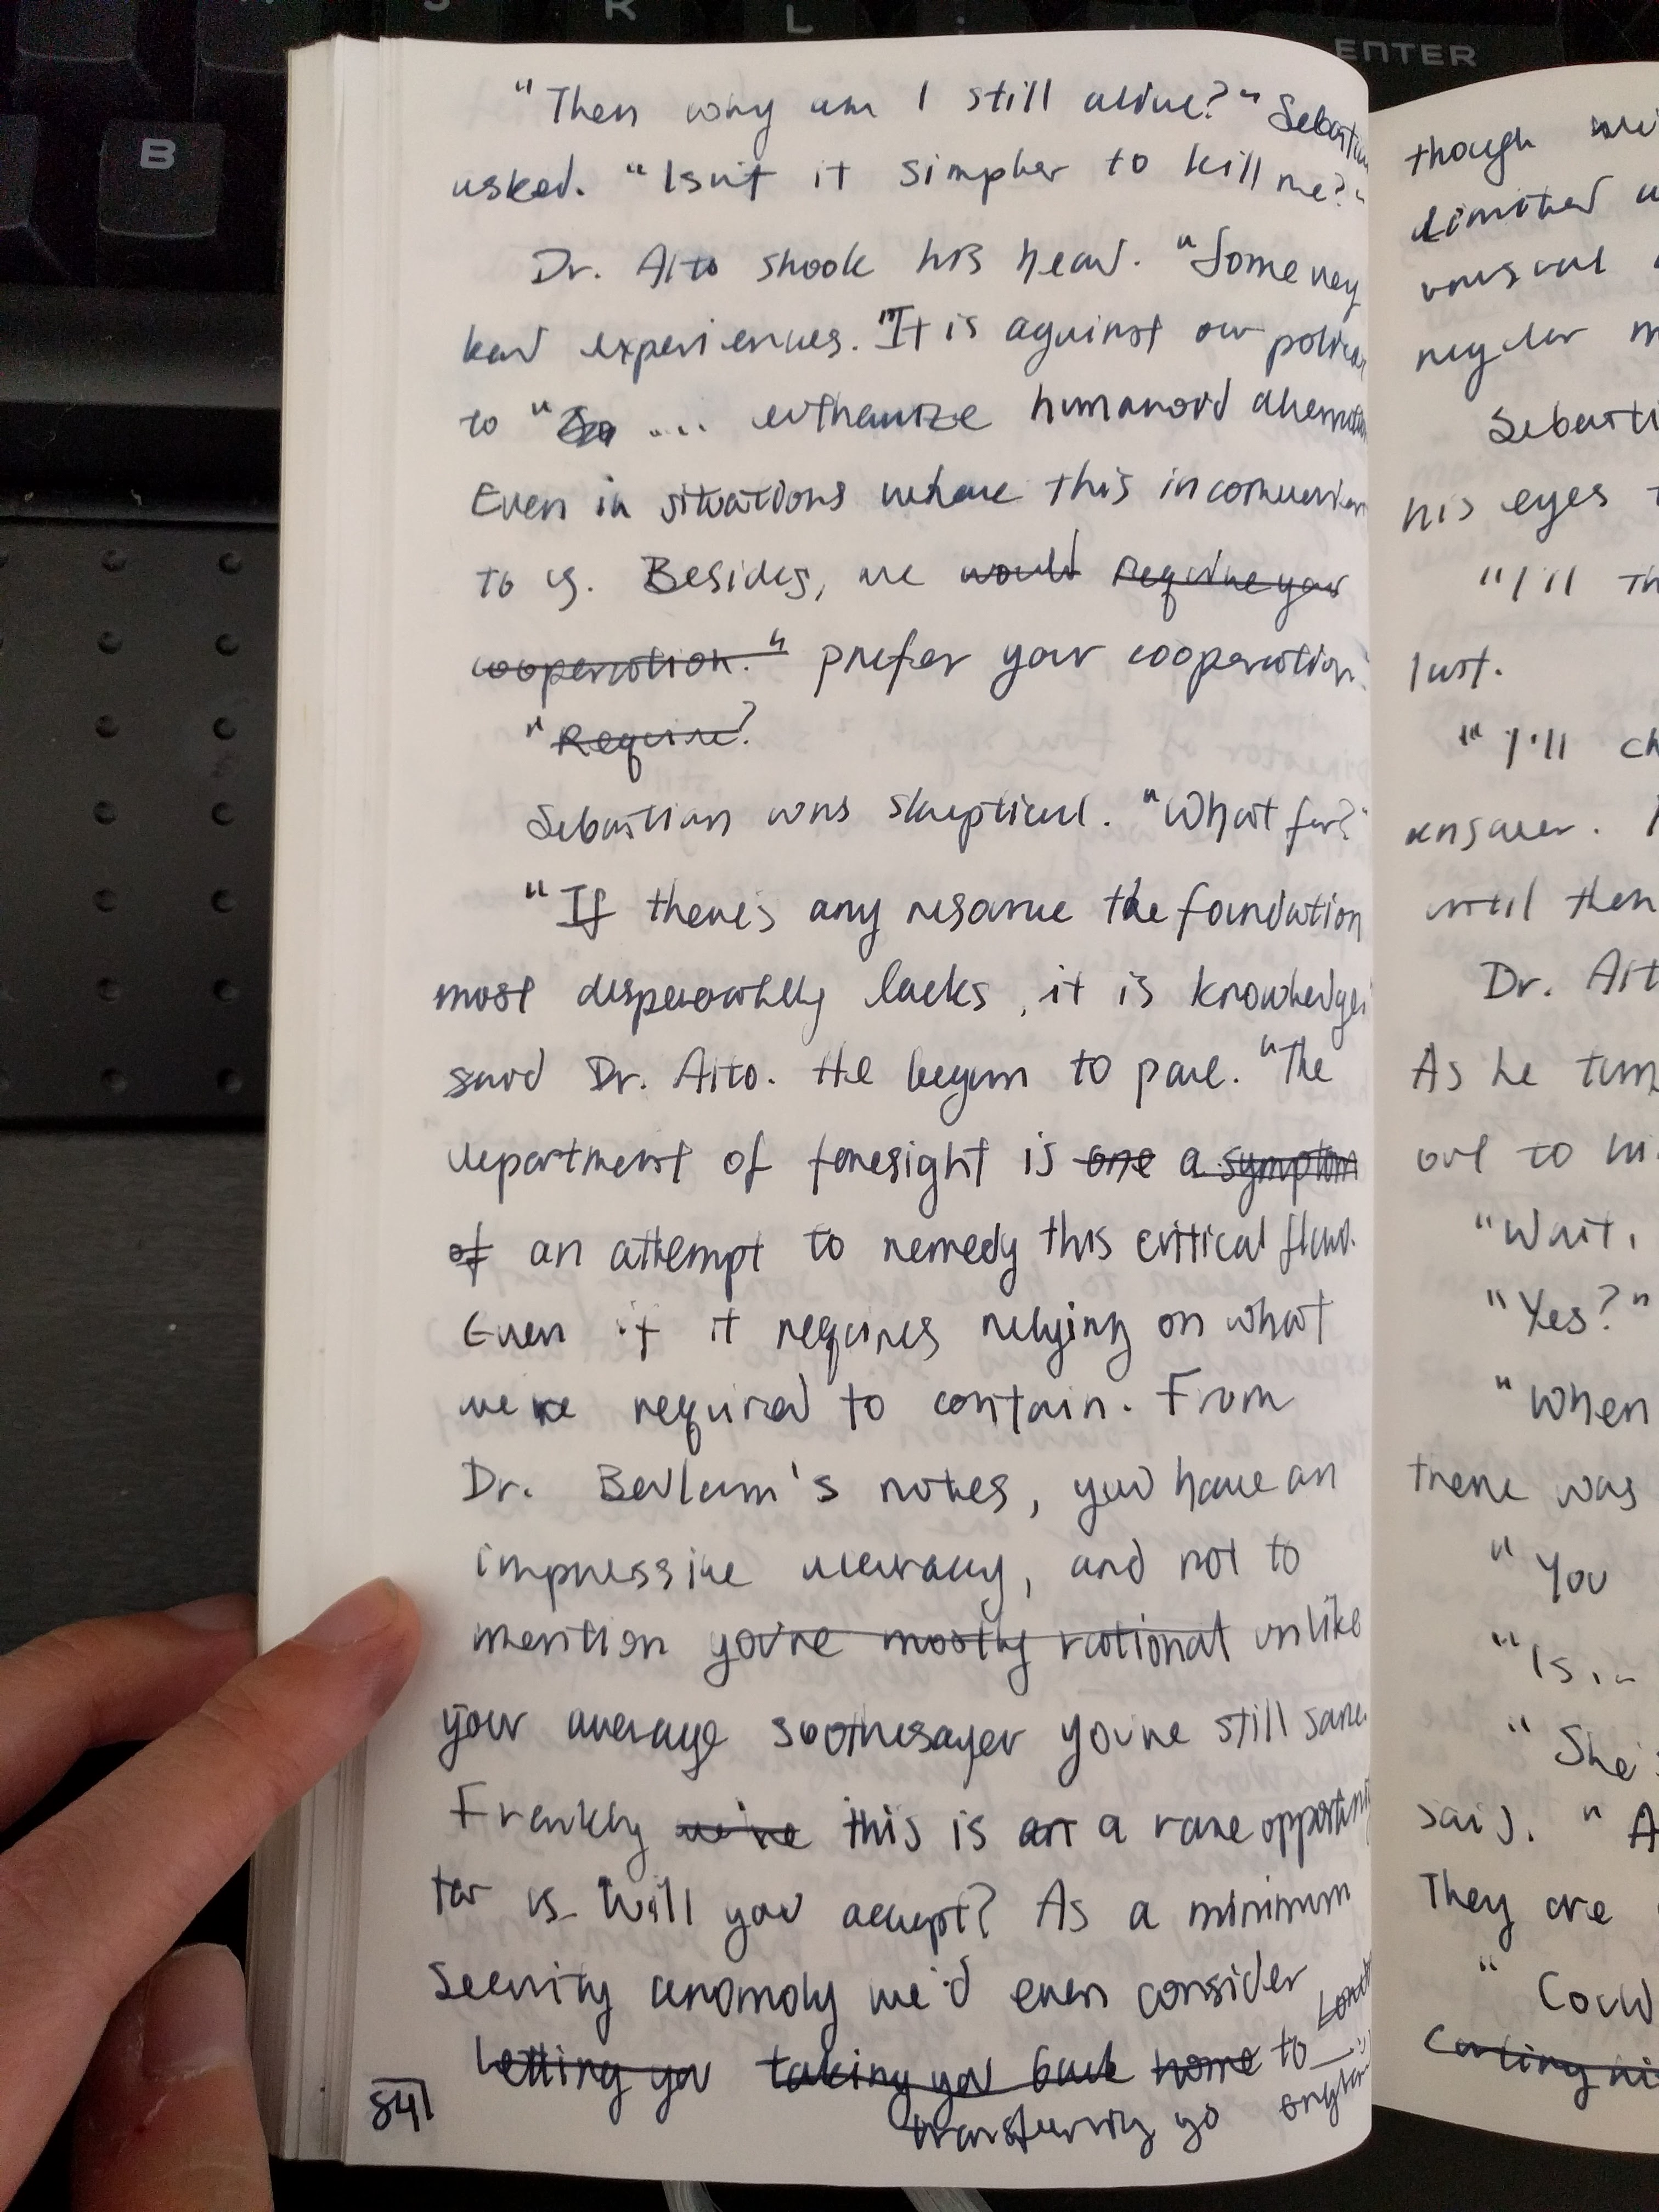 S K L ;
ENTER
B
"Then why am I still alive?" Sebastian
asked. "Isn't it simpler to kill me?"
Dr. Aito shook his head. "Some very
bad experiences. "It is against our policies
to " ... euthanize humanoid
Even in situations where this inconvenien
to us. Besides, we would require your
cooperation." prefer your cooperation."
"Require?
Sebastian was skeptical. "What for?"
"If there's any resource the foundation
most desperately lacks, it is knowledge,
said Dr. Aito. He began to pace. "The
department of foresight is one a symptom
of an attempt to remedy this critical flaw.
Even if it requires relying on what
we're required to contain. From
Dr. Bedlam's notes, you have an
impressive accuracy, and not to
mention you're mostly rational unlike
your average soothesayer you're still sane.
Frankly we're this is an a rare opportunity
for us. Will you accept? As a minimum
security anomoly we'd even consider
letting you taking you back home to
transferring yo
841
though
limited
unusual
regular m
Sebasti
his eyes t
"I'll th
last.
"I'll ch
answer.
until then
Dr. Ait
As he turn
out to hi
"Wait,
"Yes?"
"When
there was
"You
"Is..
"She's
said. "A
They are
"Could